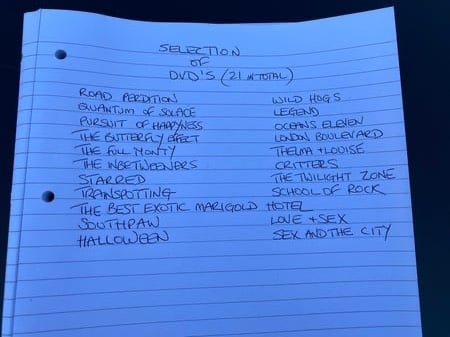 SELECTION
OF
DVD'S (21 IN TOTAL)
ROAD PERDITION
QUANTUM OF SOLACE
PURSUIT OF HAPPYNESS
THE BUTTERFLY EFFECT
THE FULL MONTY
THE INBETWEENERS
STARRED
TRAINSPOTTING
THE BEST EXOTIC MARIGOLD HOTEL
SOUTHPAW
HALLOWEEN
WILD HOGS
LEGEND
OCEANS ELEVEN
LONDON BOULEVARD
THELMA + LOUISE
CRITTERS
THE TWILIGHT ZONE
SCHOOL OF ROCK
LOVE + SEX
SEX AND THE CITY